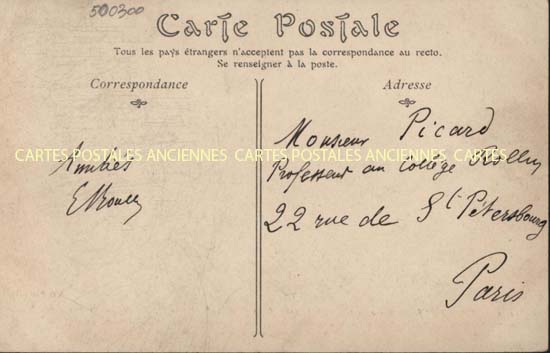 500300
Carte Postale
Tous les pays étrangers n'acceptent pas la correspondance au recto.
Se renseigner à la poste.
Correspondance
Adresse
CARTES POSTALES ANCIENNES CARTES POSTALES ANCIENNES CARTES
Amitiés
Monsieur Picard
Professeur au Collège Rollin
22 rue de St Pétersbourg
Paris